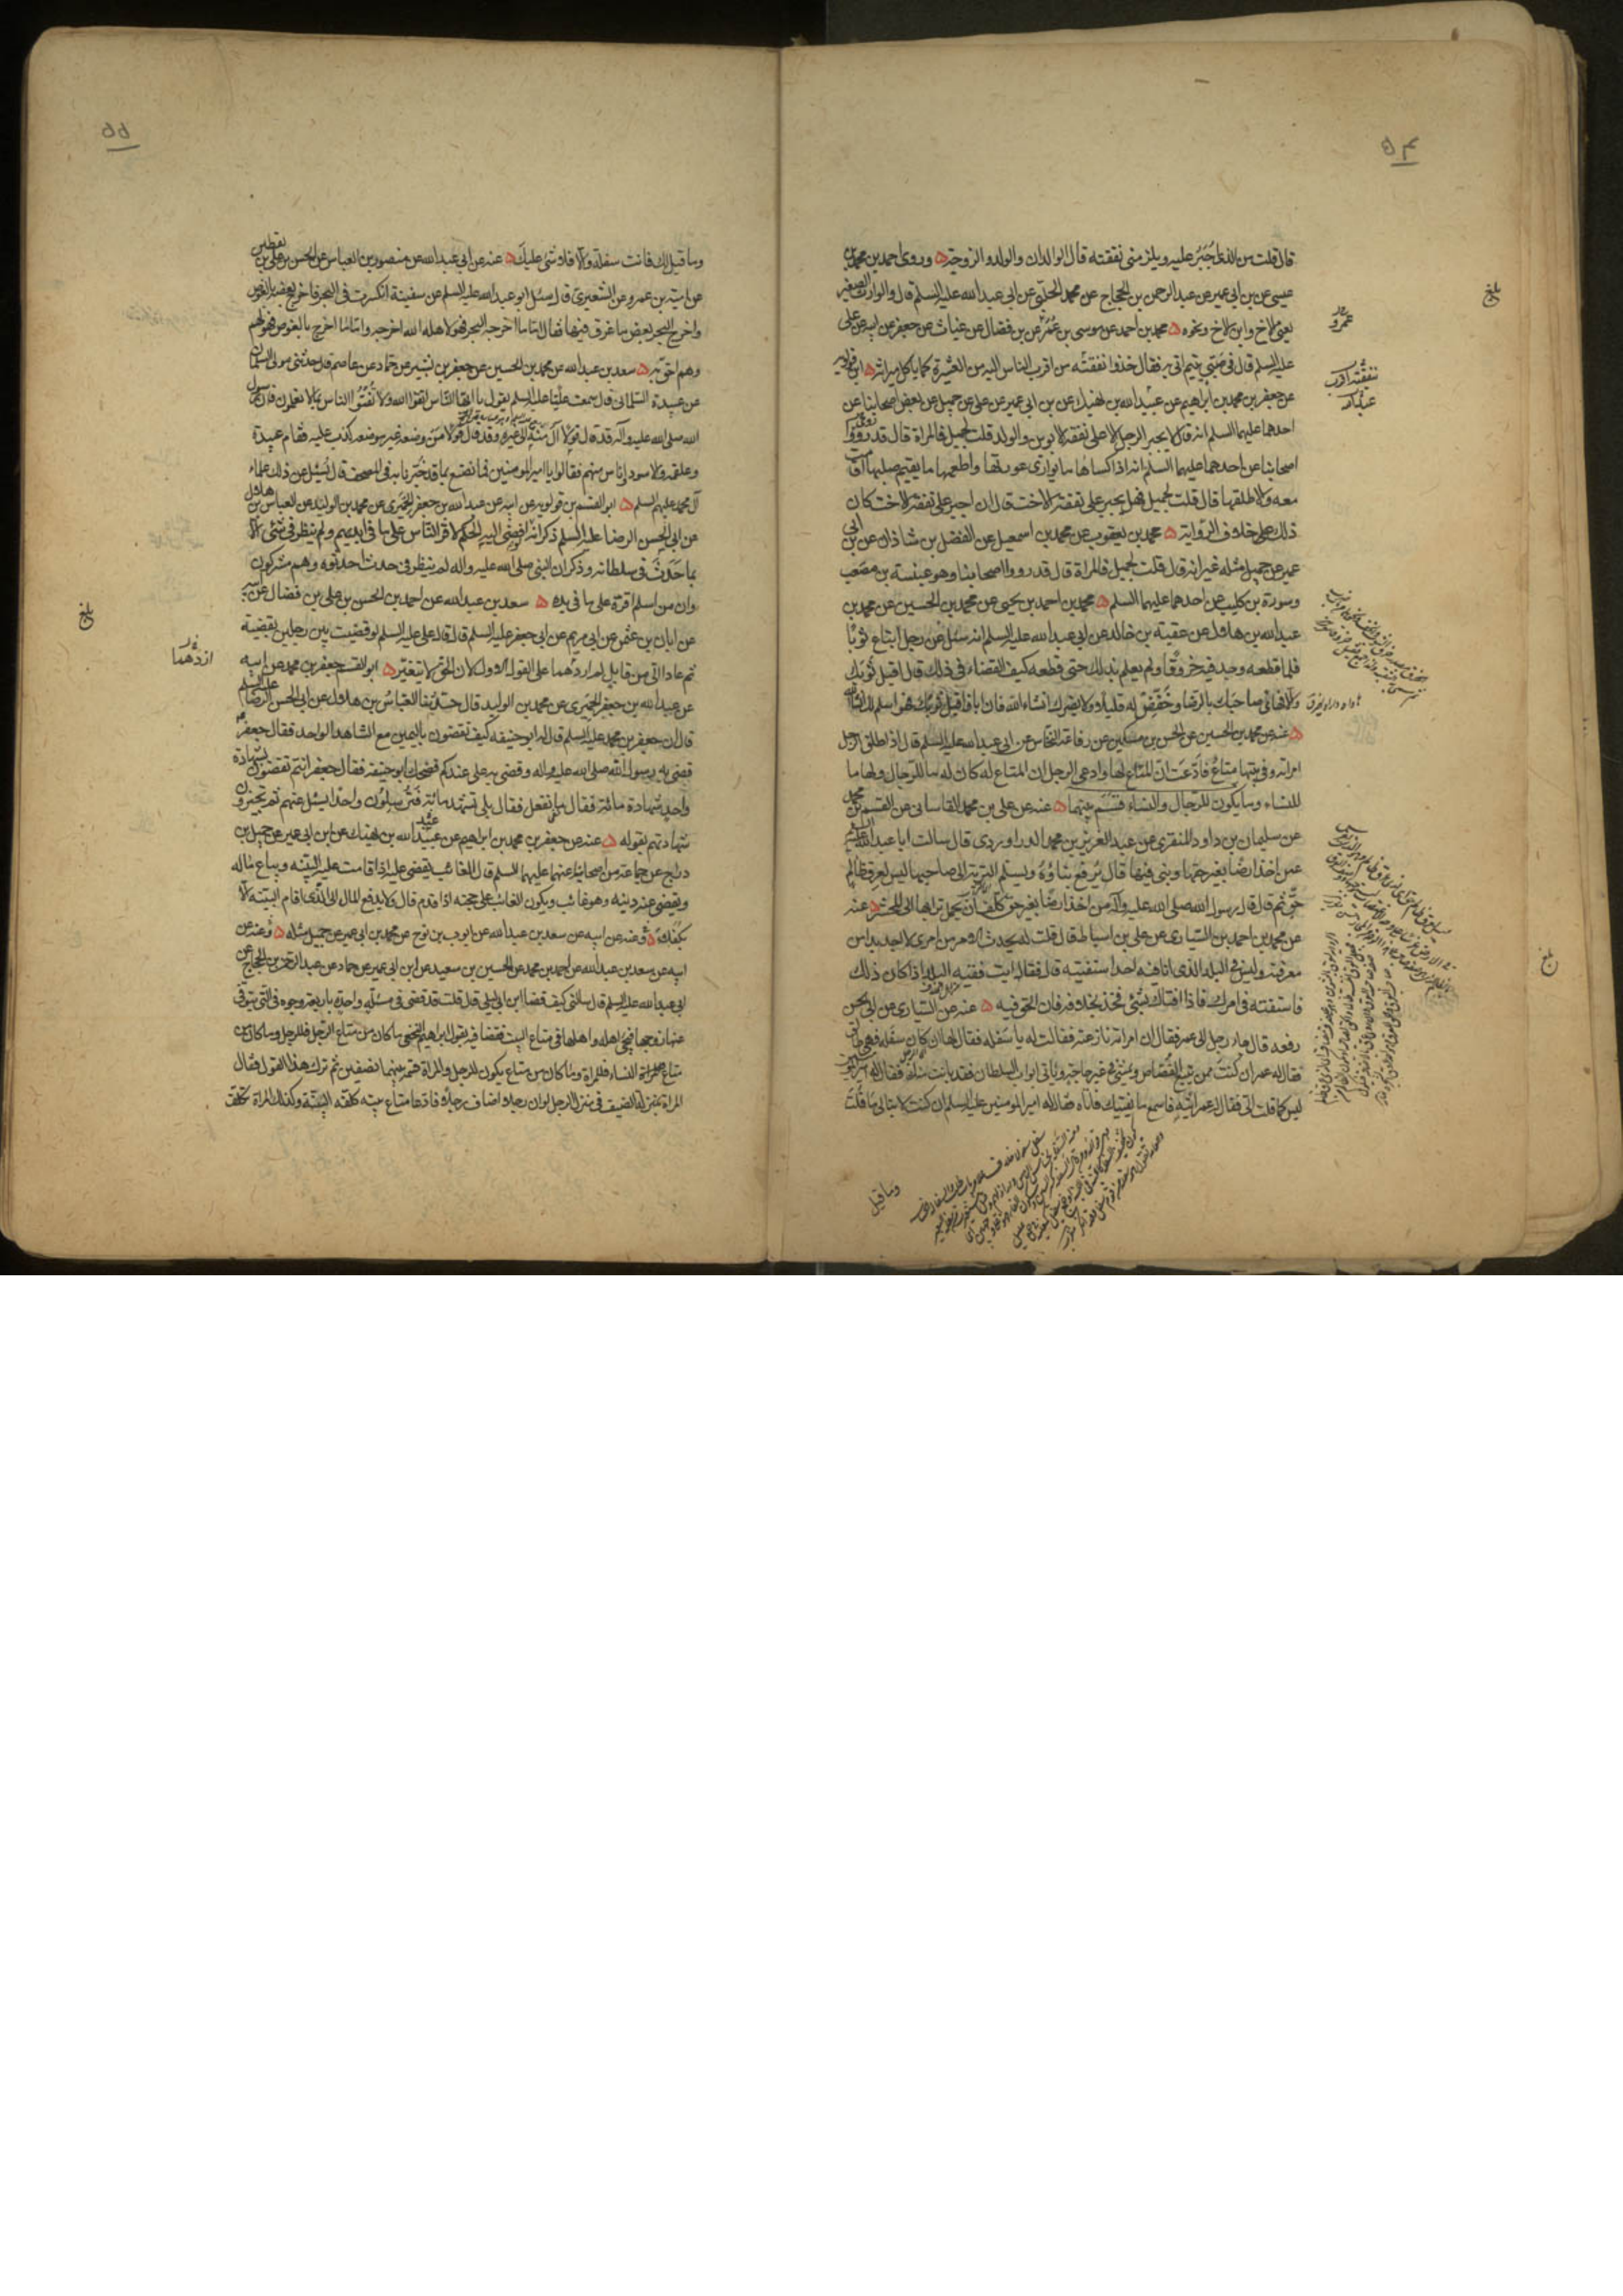 ۵۴
قال قلت من الذى اجبر عليه ويلزمنى نفقته قال الوالدان والولد والزوجة وروى احمد بن محمد بن
عيسى عن بن ابى عمير عن عبد الرحمن بن الحجاج عن محمد الحلبى عن ابى عبد الله عليه السلم قال والوارث الصغير
يعنى الاخ وابن الاخ ونحوه محمد بن احمد عن موسى بن عمر عن بن فضال عن غياث عن جعفر عن ابيه عن على
عليه السلم قال فى صبى يتيم اتى به فقال خذوا نفقته من اقرب الناس اليه من العشيرة كما ياكل ميراثه ابن قولويه
عن جعفر بن محمد بن ابراهيم عن عبيد الله بن نهيك عن بن ابى عمير عن على عن جميل عن بعض اصحابنا عن
احدهما عليهما السلم انه قال لا يجبر الرجل الا على نفقة الابوين والولد قلت لجميل فالمراة قال قد رووا
اصحابنا عن احدهما عليهما السلم انه اذا كساها ما يوارى عورتها واطعمها ما يقيم صلبها اقامت
معه والا طلقها قال قلت لجميل فهل يجبر على نفقة الاخت قال ان اجبر على نفقة الاخت كان
ذلك على خلاف الرواية محمد بن يعقوب عن محمد بن اسمعيل عن الفضل بن شاذان عن بن ابى
عمير عن جميل مثله غير انه قال قلت لجميل فالمراة قال قد رووا اصحابنا وهو عنبسة بن مصعب
وسورة بن كليب عن احدهما عليهما السلم محمد بن احمد بن يحيى عن محمد بن الحسين عن محمد بن
عبد الله بن هلال عن عقبة بن خالد عن ابى عبد الله عليه السلم انه سئل عن رجل ابتاع ثوبا
فلما قطعه وجد فيه خروقا ولم يعلم بذلك حتى قطعه كيف القضاء فى ذلك قال اقبل ثوبك
والا فهاى صاحبك بالرضا وخفض له قليلا ولا يضرك انشاء الله فان ابا فاقبل ثوبك فهو اسلم لك انشاء الله
عنه عن محمد بن الحسين عن الحسن بن مسكين عن رفاعة النخاس عن ابى عبد الله عليه السلم قال اذا طلق الرجل
امراته وفى بيتها متاع فادعت ان المتاع لها وادعى الرجل ان المتاع له كان له ما للرجال ولها ما
للنساء وما يكون للرجال والنساء قسم بينهما عنه عن على بن محمد القاسانى عن القسم بن محمد
عن سليمان بن داود المنقرى عن عبد العزيز بن محمد الدراوردى قال سالت ابا عبد الله عليه السلم
عمن اخذ ارضا بغير حقها وبنى فيها قال يرفع بناؤه ويسلم التربة الى صاحبها ليس لعرق ظالم
حق ثم قال قال رسول الله صلى الله عليه وآله من اخذ ارضا بغير حق كلف ان يحمل ترابها الى المحشر عنه
عن محمد بن احمد بن السيارى عن على بن اسباط قال قلت له يحدث الامر من امرى لا اجد بدا من
معرفته وليس فى البلد الذى انا فيه احدا استفتيه قال فقال ايت فقيه البلد اذا كان ذلك
فاستفته فى امرك فاذا افتاك بشئ فخذ بخلافه فان الحق فيه عنه عن السيارى عن ابى الحسن
رفعه قال جاء رجل الى عمر فقال ان امراته نازعته فقالت له يا سفله فقال لها ان كان سفله فهى طالق
فقال له عمر ان كنت ممن يتبع القصاص ويمشى فى غير حاجة وياتى ابواب السلطان فقد بانت منك فقال له امير المومنين
ليس كما قلت الى فقال له عمر ائته فاسمع ما يفتيك فاتاه فقال له امير المومنين عليه السلم ان كنت لا تبالى ما قلت
وما قيل
بلغ
عمرو
نفقته اقرب
عبد الله
بلغ
۵۵
وما قيل لك فانت سفلة والا فلا شئ عليك عنه عن ابى عبد الله عن منصور بن العباس عن الحسن بن على بن يقطين
عن امية بن عمرو عن الشعيرى قال سئل ابو عبد الله عليه السلم عن سفينة انكسرت فى البحر فاخرج بعضه بالغوص
واخرج البحر بعض ما غرق فيها فقال اما ما اخرجه البحر فهو لاهله الله اخرجه واما ما اخرج بالغوص فهو لهم
وهم احق به سعد بن عبد الله عن محمد بن الحسين عن جعفر بن بشير عن حماد عن عاصم قال حدثنى مولى لسلمان
عن عبيدة السلمانى قال سمعت عليا عليه السلم يقول يا ايها الناس اتقوا الله ولا تفتوا الناس بما لا تعلمون فان رسول
الله صلى الله عليه وآله قد قال قولا آل منه الى غيره وقد قال قولا من وضعه غير موضعه كذب عليه فقام عبيدة
وعلقمة والاسود واناس منهم فقالوا يا امير المومنين فما نصنع بما قد خبرنا به فى المصحف قال يسئل عن ذلك علماء
آل محمد عليهم السلم ابو القسم بن قولويه عن ابيه عن عبد الله بن جعفر الحميرى عن محمد بن الوليد عن العباس بن هلال
عن ابى الحسن الرضا عليه السلم ذكر انه لو افضى اليه الحكم لاقر الناس على ما فى ايديهم ولم ينظر فى شئ الا
بما حدث فى سلطانه وذكر ان النبى صلى الله عليه واله لم ينظر فى حدث احدثوه وهم مشركون
وان من اسلم اقره على ما فى يده سعد بن عبد الله عن احمد بن الحسن بن على بن فضال عن ابيه
عن ابان بن عثمن عن ابى مريم عن ابى جعفر عليه السلم قال قال على عليه السلم لو قضيت بين رجلين بقضية
ثم عادا الى من قابل لم اردهما على القول الاول لان الحق لا يتغير ابو القسم جعفر بن محمد عن ابيه
عن عبد الله بن جعفر الحميرى عن محمد بن الوليد قال حدثنا العباس بن هلال عن ابى الحسن الرضا عليه السلم
قال ان جعفر بن محمد عليه السلم قال له ابو حنيفه كيف تقضون باليمين مع الشاهد الواحد فقال جعفر
قضى به رسول الله صلى الله عليه واله وقضى به على عندكم فضحك ابو حنيفة فقال جعفر انتم تقضون بشهادة
واحد شهادة مائة فقال ما نفعل فقال بلى تشهد مائة فترسلون واحدا يسئل عنهم ثم تجيزون
شهادتهم بقوله عنه عن جعفر بن محمد بن ابراهيم عن عبيد الله بن نهيك عن ابن ابى عمير عن جميل بن
دراج عن جماعة من اصحابنا عنهما عليهما السلم قال الغائب يقضى عليه اذا قامت عليه البينة ويباع ماله
ويقضى عنه دينه وهو غائب ويكون الغائب على حجته اذا قدم قال ولا يدفع المال الى الذى اقام البينة الا
بكفلاء وعنه عن ابيه عن سعد بن عبد الله عن ايوب بن نوح عن محمد بن ابى عمير عن جميل مثله وعنه عن
ابيه عن سعد بن عبد الله عن احمد بن محمد عن الحسين بن سعيد عن ابن ابى عمير عن حماد عن عبد الرحمن بن الحجاج عن
ابى عبد الله عليه السلم قال سالنى كيف قضا ابن ابى ليلى قال قلت قد قضى فى مسئلة واحدة باربعة وجوه فى التى يتوفى
عنها زوجها فيجئ اهله واهلها فى متاع البيت فقضا فيه بقول ابراهيم النخعى ما كان من متاع الرجل فللرجل وما كان من
متاع النساء فللمراة وما كان من متاع يكون للرجل والمراة قسمه بينهما نصفين ثم ترك هذا القول فقال
المراة بمنزلة الضيف فى منزل الرجل لو ان رجلا اضاف رجلا فادعا متاع بيته كلفه البينة وكذلك المراة تكلف
بلغ
اردهما